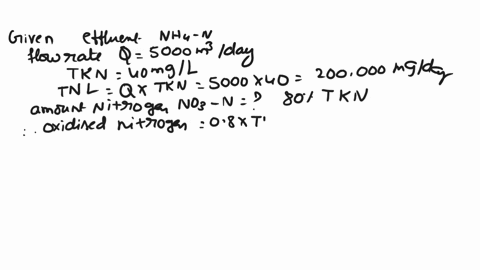 Given effluent NH4-N
flow rate Q = 5000 m³/day
TKN = 40 mg/L
TNL = Q x TKN = 5000 x 40 = 200,000 mg/day
amount Nitrogen NO3-N = ? 80% TKN
∴ oxidised nitrogen = 0.8 x T'